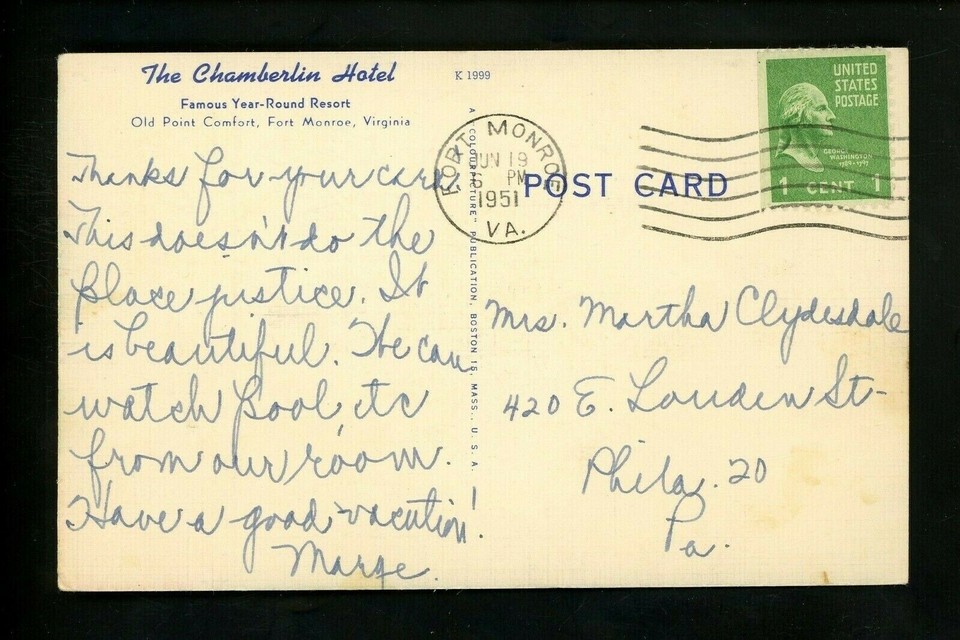 The Chamberlin Hotel
Famous Year-Round Resort
Old Point Comfort, Fort Monroe, Virginia
K 1999
Thanks for your card.
This doesn't do the
place justice. It
is beautiful. We can
watch pool, etc
from our room.
Have a good vacation!
Marge.
A "COLOURPICTURE" PUBLICATION, BOSTON 15, MASS., U. S. A.
FORT MONROE
JUN 19
PM
1951
VA.
POST CARD
UNITED
STATES
POSTAGE
GEORGE
WASHINGTON
1789-1797
1 CENT 1
Mrs. Martha Clydesdale
420 E. Louden St-
Phila. 20
Pa.